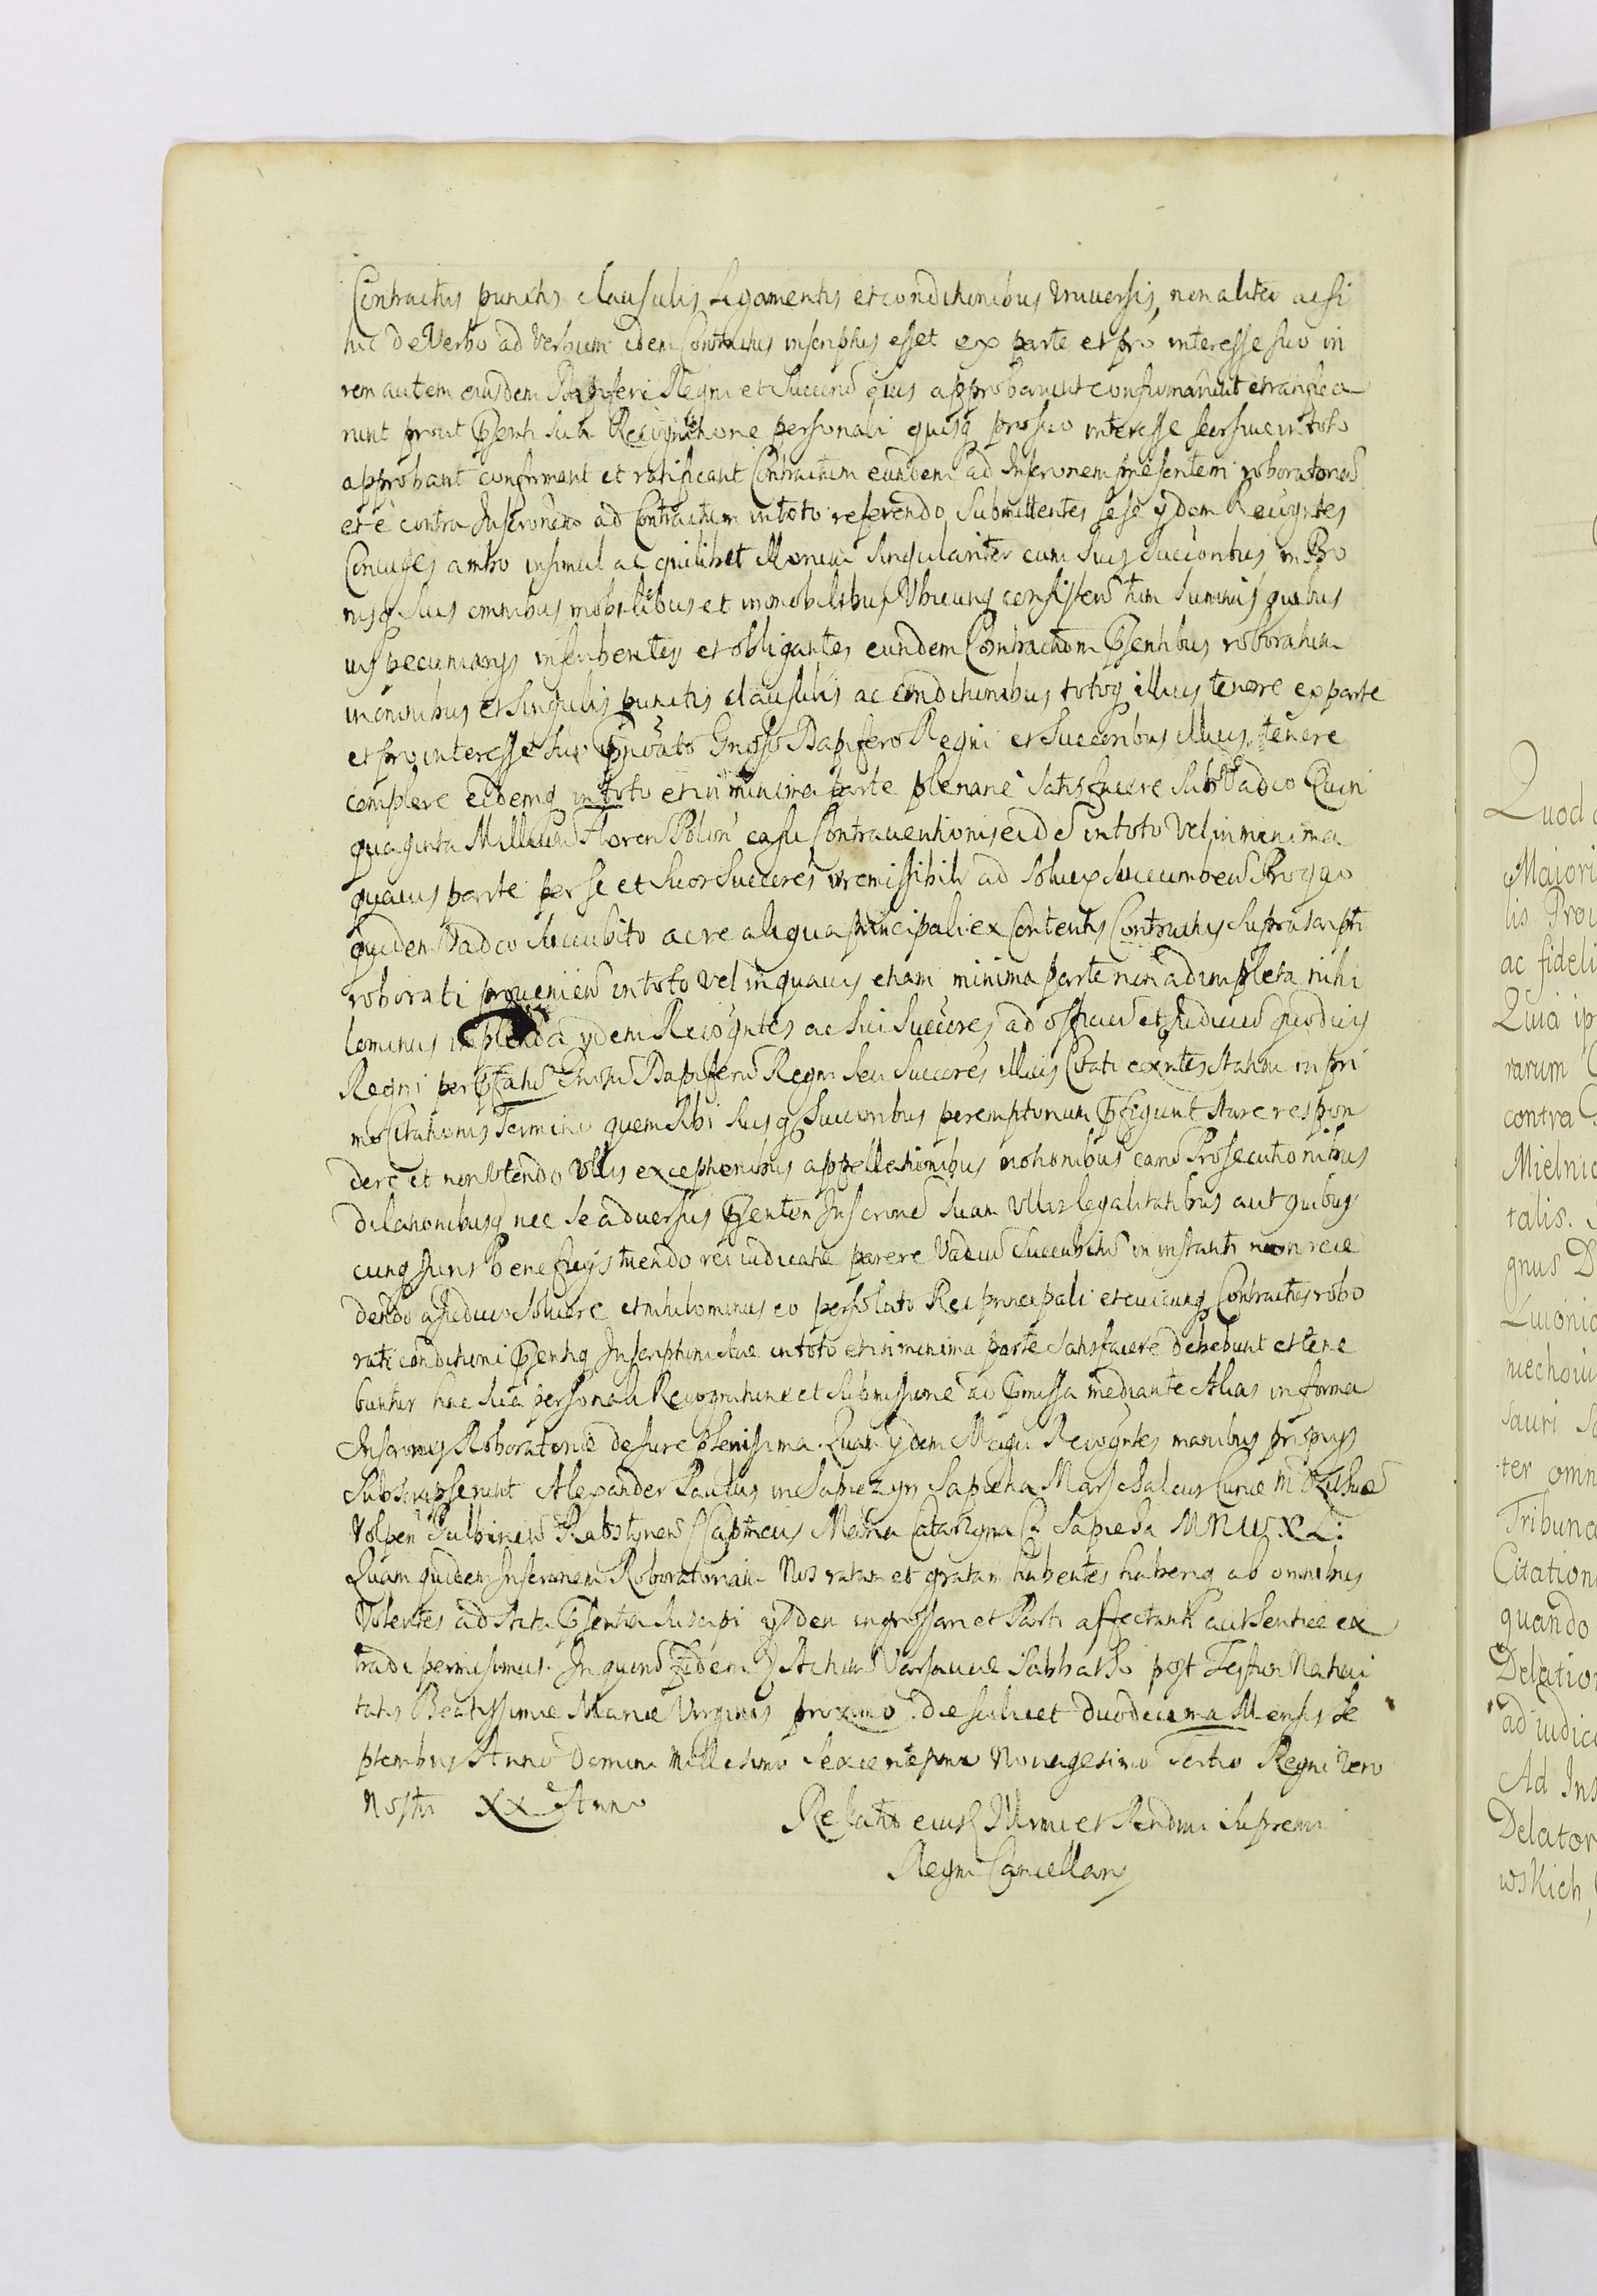 Contractus punctis clausulis ligamentis et conditionibus vniuersis, non aliter ac si
hic de Verbo ad Verbum idem Contractus inscriptus esset ex parte et pro interesse suo in
rem autem eiusdem Dapiferi Regni et Succens eius approbarunt confirmarunt et ratifica
runt prout Psenti sua Recognitione personali quisq pro suo interesse seorsiue in toto
approbant confirmant et ratificant Contractum eundem ad Inscronem presentem roboratoria
et è contra Inscronem ad Contractum in toto referendo Submittentes sese ydem Recogntes
Coniuges ambo insimul ac quilibet illorum singulariter cum Suis Succoribus in Bo
nisq Suis omnibus mobilibus et immobilibus Vbicunq consisten tum Summis quibus
uis pecuniarijs inscribentes et obligantes eundem Contractum Psentibus roboratum
in omnibus et Singulis punctis clausulis ac conditionibus totoq illius tenore ex parte
et pro interesse Suo Gnoso Dapifero Regni et Succoribus illius tenere
complere eidemq in toto et in minima parte plenarie satisfacere Sub Vadio Quin
quaginta Millium Floren Polon casu Contrauentionis eid in toto Vel in minima
quauis parte per se et Suos Succores irremissibilr ad Soluen Succumben Pro quo
quidem Vadio Succubito ac re aliqua principali ex Contentis Contractus Suprascripti
roborati prouenien in toto vel in quauis etiam minima parte non adimpleta nihi
lominus ydem Recogntes ac Sui Succores ad officiu et Judiciu quoduis
Regni per Dapiferu Regni seu Succores illius Citati extes Statim in pri
mo Citationis Termino quem Sibi Suisq Succoribus peremptorium Stare respon
dere et non Vtendo Vllis exceptionibus appellationibus motionibus earu Prosecutionibus
dilationibusq nec se aduersus Psentem Inscrone Suam Vllis legalitatibus aut quibus
cunq Juris beneficijs tuendo rei iudicatæ parere Vadiu Succubitu in instanti non rece
dendo a Judicio Soluere et nihilominus eo persoluto Rei principali et cuicunq Contractus robo
rati conditioni Psentiq Inscriptioni Suæ in toto et in minima parte Satisfacere debebunt et tene
buntur hac Sua personali Recognitione et Submissione ad Pmissa mediante Alias in forma
Inscronis Roboratoriæ de Jure plenissima. Quam ydem Magci Recogntes manibus proprijs
Subscripserunt Alexander Paulus in Sapiezyn Sapieha Marschalcus Curiæ M D Lithuæ
Volpen Rabstynen Capitneus Maria Catarzyna Sapieha M N W X L:
Quam quidem Inscronem Roboratoriam Nos ratam et gratam habentes haberiq ab omnibus
Volentes ad Acta Psentia Suscipi ysdem ingrossari et Parti affectanti authentice ex
tradi permisimus. In quoru fidem Actum Varsauiæ Sabbatho post Festum Natiui
tatis Beatissimæ Mariæ Virginis proximo. die scilicet duodecima Mensis Se
ptembris Anno Domini Millesimo Sexcentesimo Nonagesimo Tertio Regni Vero
Nostri XX Anno
Relatio eiusd Illrmi et Rendmi Supremi
Regni Cancellarij
Quod
Maiori
lis Prou
ac fideli
Quia ip
rarum
contra
Mielnic
talis.
gnus D
Liuonic
niechoui
sauri
ter omn
Tribuna
Citation
quando
Delation
ad iudic
Ad Ins
Delator
wskich,